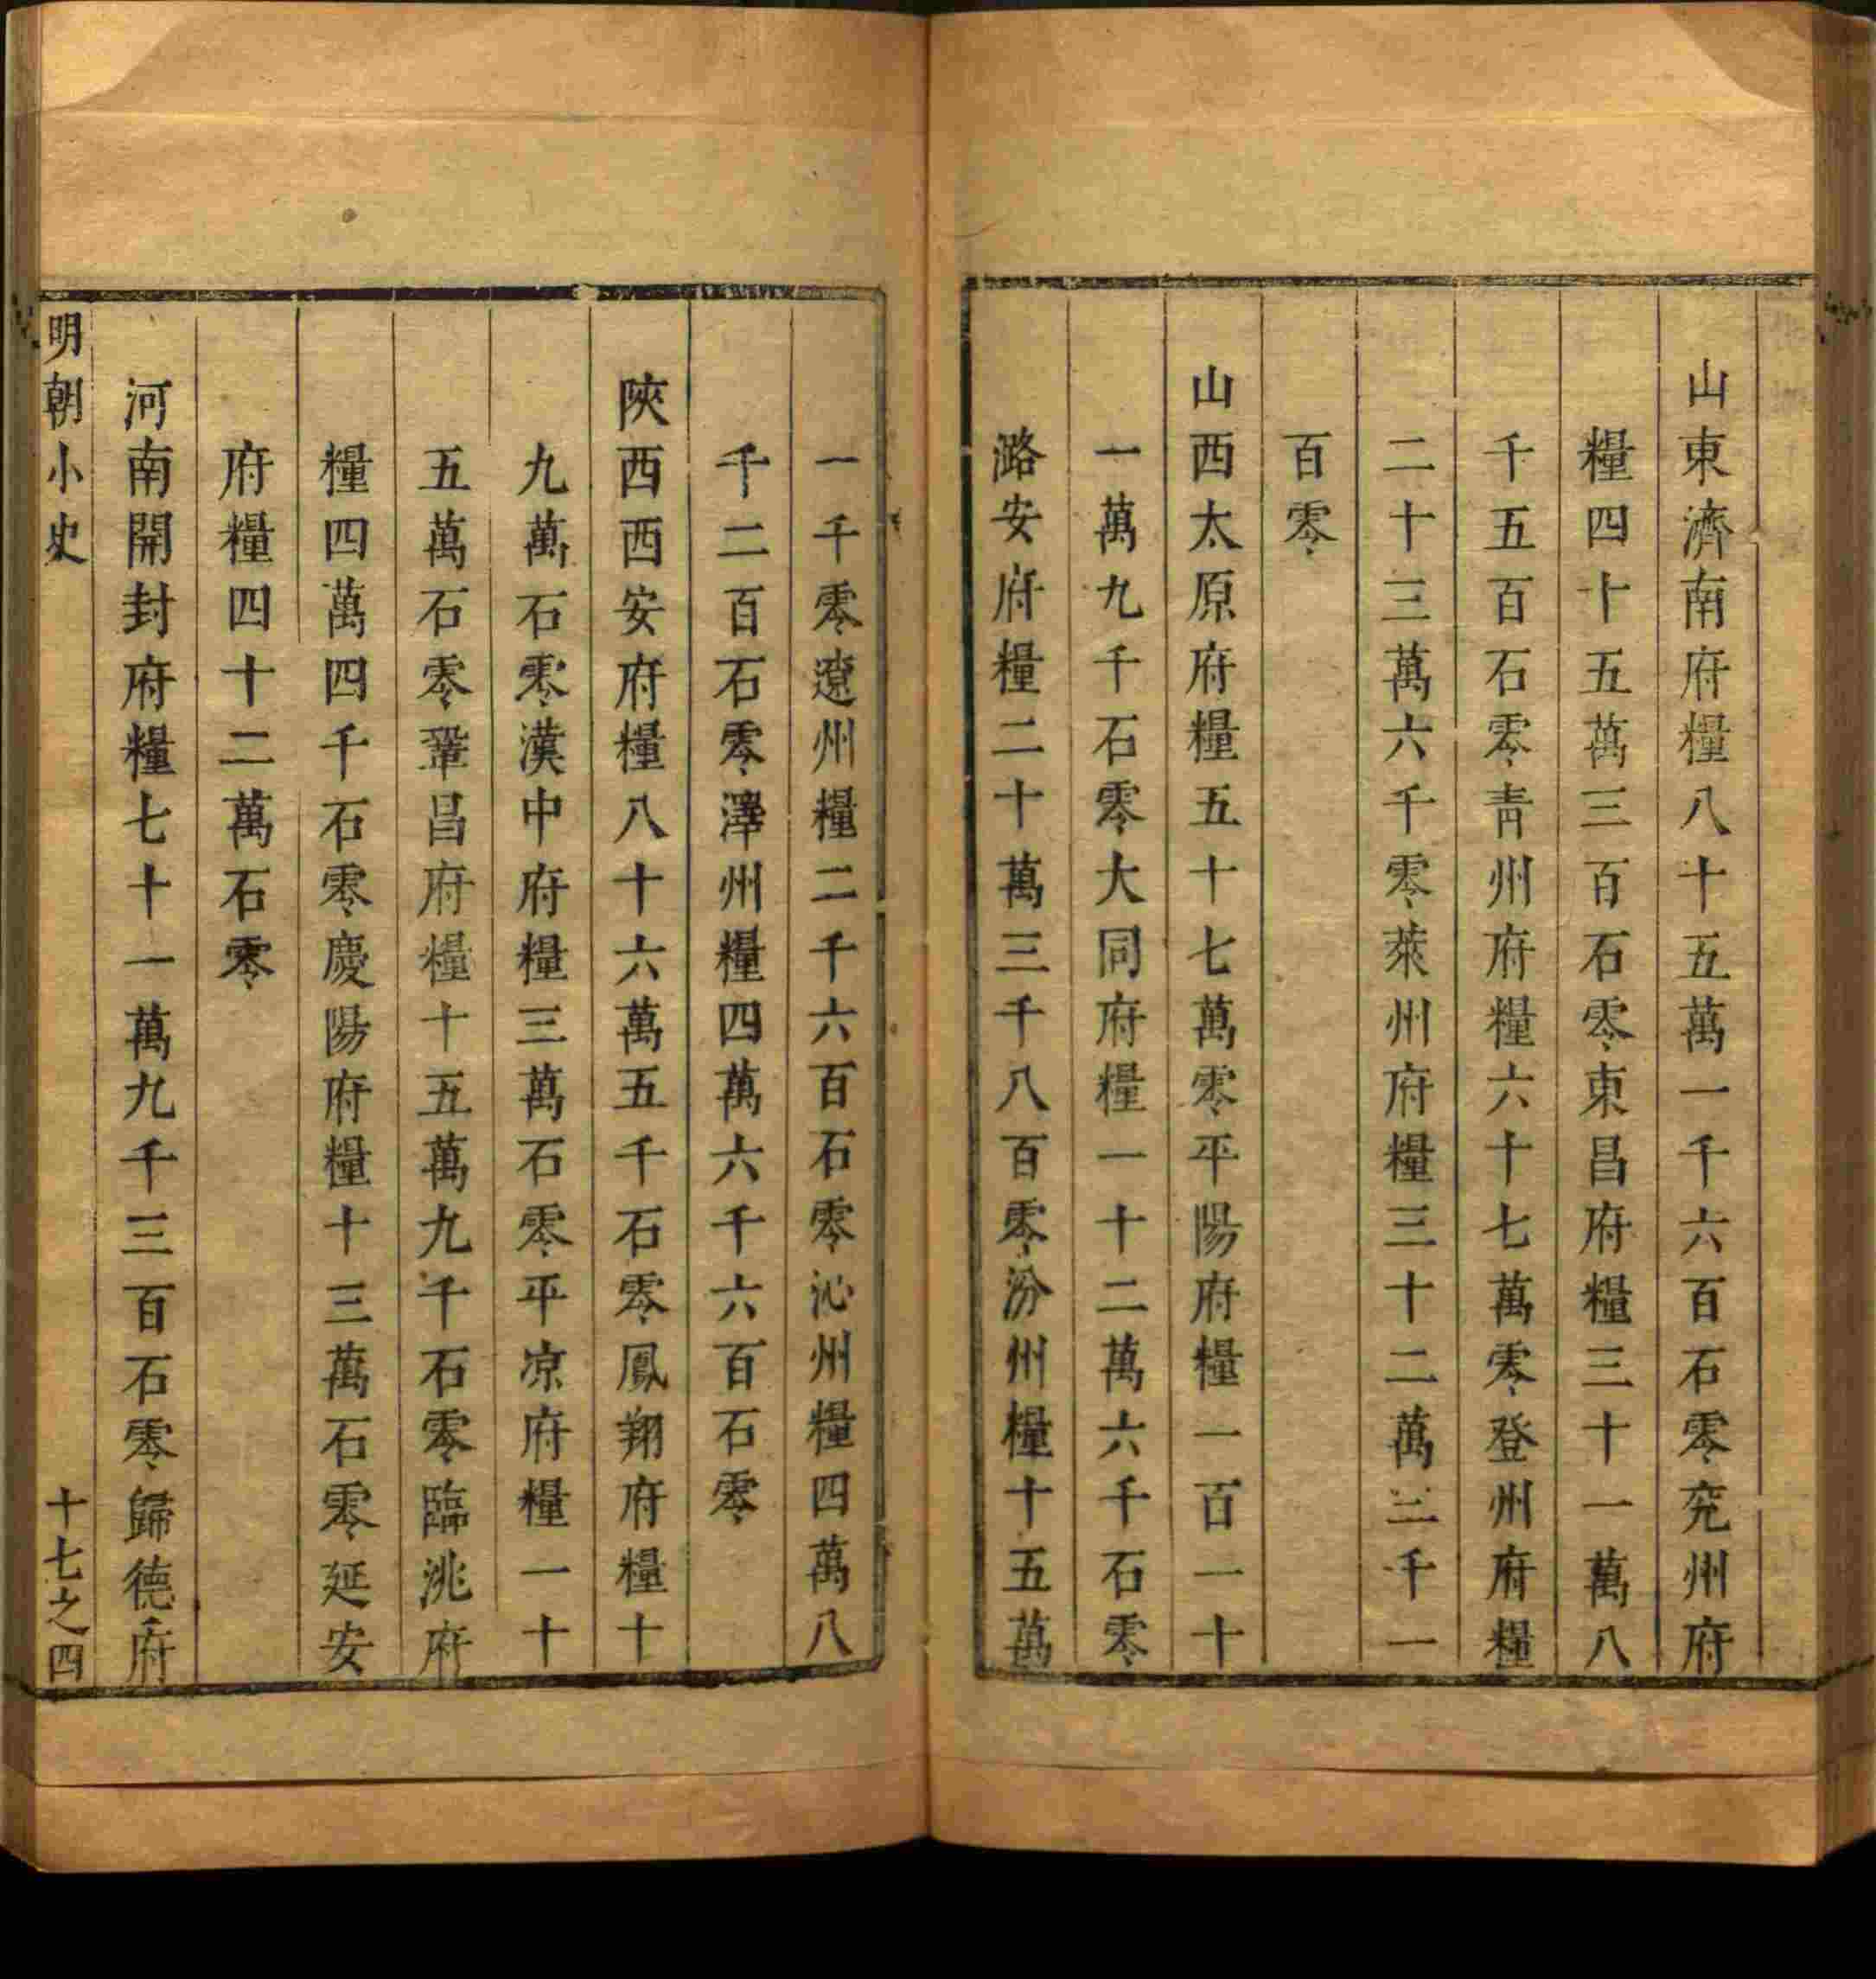 山東濟南府糧八十五萬一千六百石零兖州府
糧四十五萬三百石零東昌府糧三十一萬八
千五百石零青州府糧六十七萬零登州府糧
二十三萬六千零萊州府糧三十二萬三千一
百零
山西太原府糧五十七萬零平陽府糧一百一十
一萬九千石零大同府糧一十二萬六千石零
潞安府糧二十萬三千八百零汾州糧十五萬
一千零遼州糧二千六百石零沁州糧四萬八
千二百石零澤州糧四萬六千六百石零
陝西西安府糧八十六萬五千石零鳳翔府糧十
九萬石零漢中府糧三萬石零平凉府糧一十
五萬石零鞏昌府糧十五萬九千石零臨洮府
糧四萬四千石零慶陽府糧十三萬石零延安
府糧四十二萬石零
河南開封府糧七十一萬九千三百石零歸德府
明朝小史
十七之四